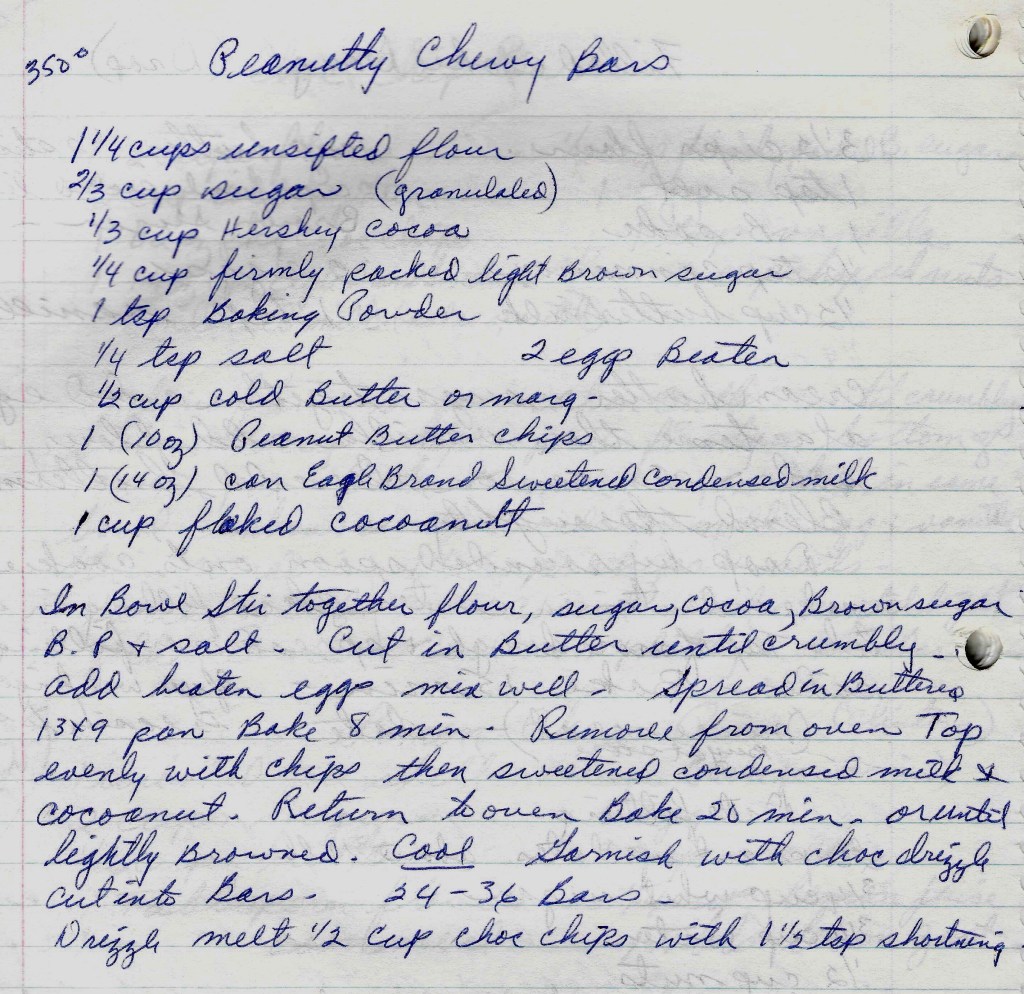 350° Peanutty Chewy Bars
1 1/4 cups unsifted flour
2/3 cup sugar (granulated)
1/3 cup Hershey cocoa
1/4 cup firmly packed light Brown sugar
1 tsp Baking Powder
1/4 tsp salt 2 eggs Beaten
1/2 cup cold Butter or marg-
1 (10 oz) Peanut Butter chips
1 (14 oz) can Eagle Brand Sweetened Condensed milk
1 cup flaked cocoanutt
In Bowl Stir together flour, sugar, cocoa, Brown sugar
B. P + salt - Cut in Butter until crumbly -
add beaten eggs mix well - Spread in Buttered
13x9 pan Bake 8 min - Remove from oven Top
evenly with chips then sweetened condensed milk +
cocoanut. Return to oven Bake 20 min - or until
lightly Browned. Cool Garnish with choc drizzle
cut into Bars - 24-36 Bars -
Drizzle melt 1/2 cup choc chips with 1 1/2 tsp shortning